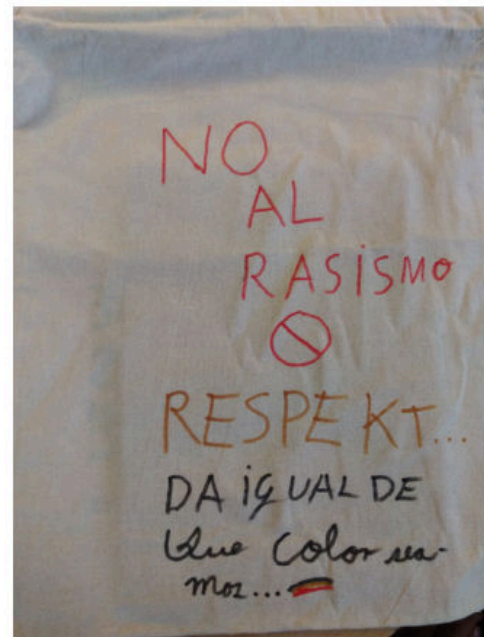 NO
AL
RASISMO
RESPEKT...
DA IGUAL DE
Que Color sea-
mos...